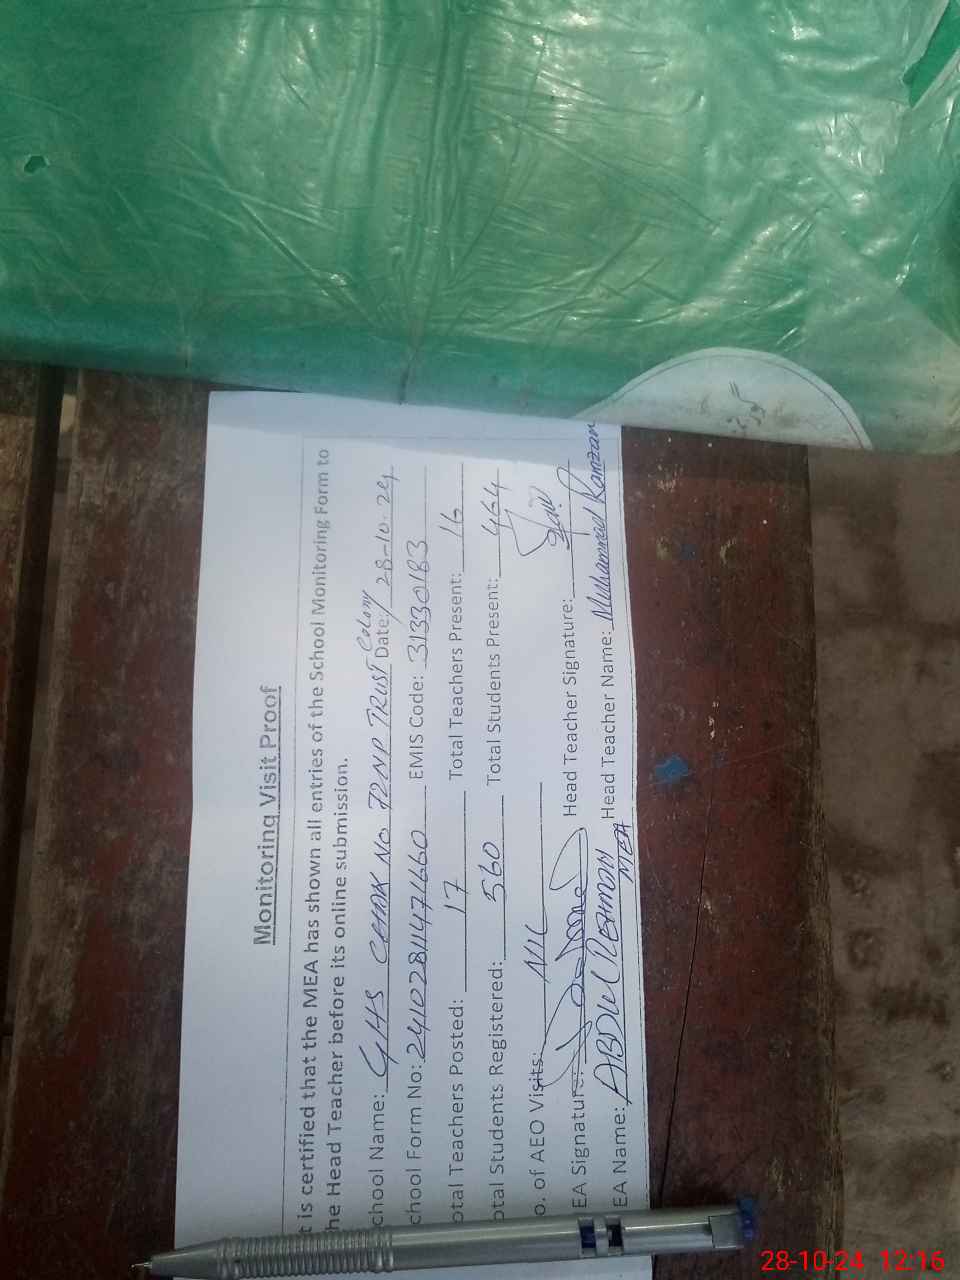 Monitoring Visit Proof
t is certified that the MEA has shown all entries of the School Monitoring Form to
he Head Teacher before its online submission.
chool Name: GHS CHAK No 72NP TRUST Colony Date: 28-10-24
chool Form No: 241028114731660 EMIS Code: 31330183
otal Teachers Posted: 17 Total Teachers Present: 16
otal Students Registered: 560 Total Students Present: 464
o. of AEO Visits: NIL
EA Signature: Head Teacher Signature:
EA Name: ABDUL REHMAN MEA Head Teacher Name: Muhammad Ramzan
28-10-24 12:16